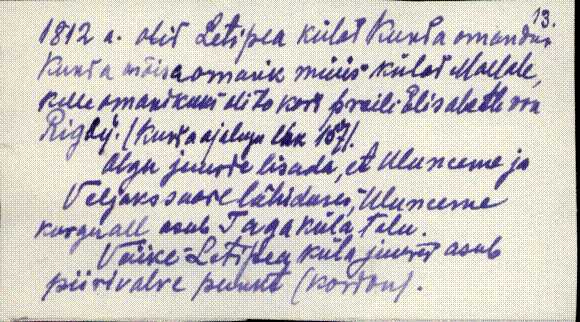 13.
1812 a. olid Letipea külad Kunda omandus
Kunda mõisaomanik müüs külad Mallale,
kelle omanikuks oli to kord preili Elisabeth von
Rigdy. (Kunda ajalugu lhk 187).
Olgu juurde lisada, et Uluneeme ja
Veljaks saare läheduses, Uluneeme
kurgu all asub Tagaküla talu.
Väike-Letipea küla juures asub
piirivalve punkt (kordon).